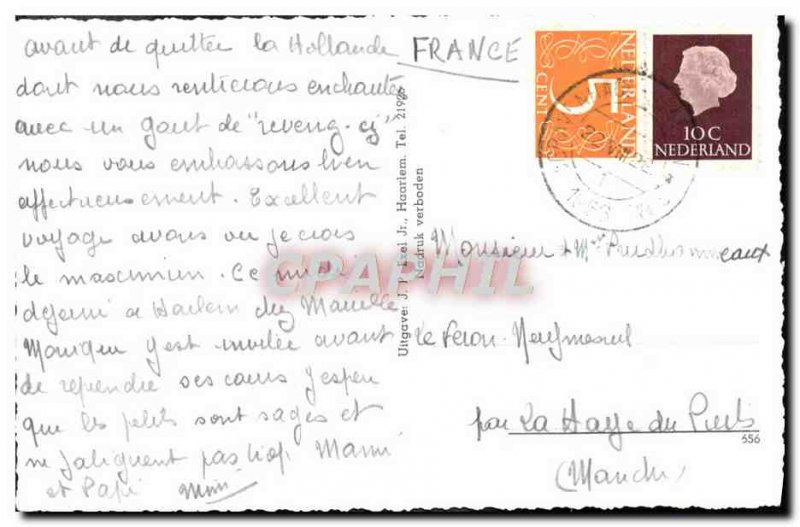 avant de quitter la Hollande
dont nous rentierons enchantés
avec un gout de "revenez-ej"
nous vous embrassons bien
affectueusement. Excellent
voyage avons vu je crois
le maximum. Ce midi
déjeuné a Harlem chez
Monique y est invitée avant
de reprendre ses cours j'espere
que les petits sont sages et
ne fatiguent pas trop. Mami
et Papi
FRANCE
Uitgave: J. P. Exel Jr., Haarlem. Tel. 21926
Nadruk verboden
NEDERLAND
5
CENT
10 C
NEDERLAND
Monsieur &
Le Feron
par La Haye du Puits
(Manche)
556
CPAPHIL